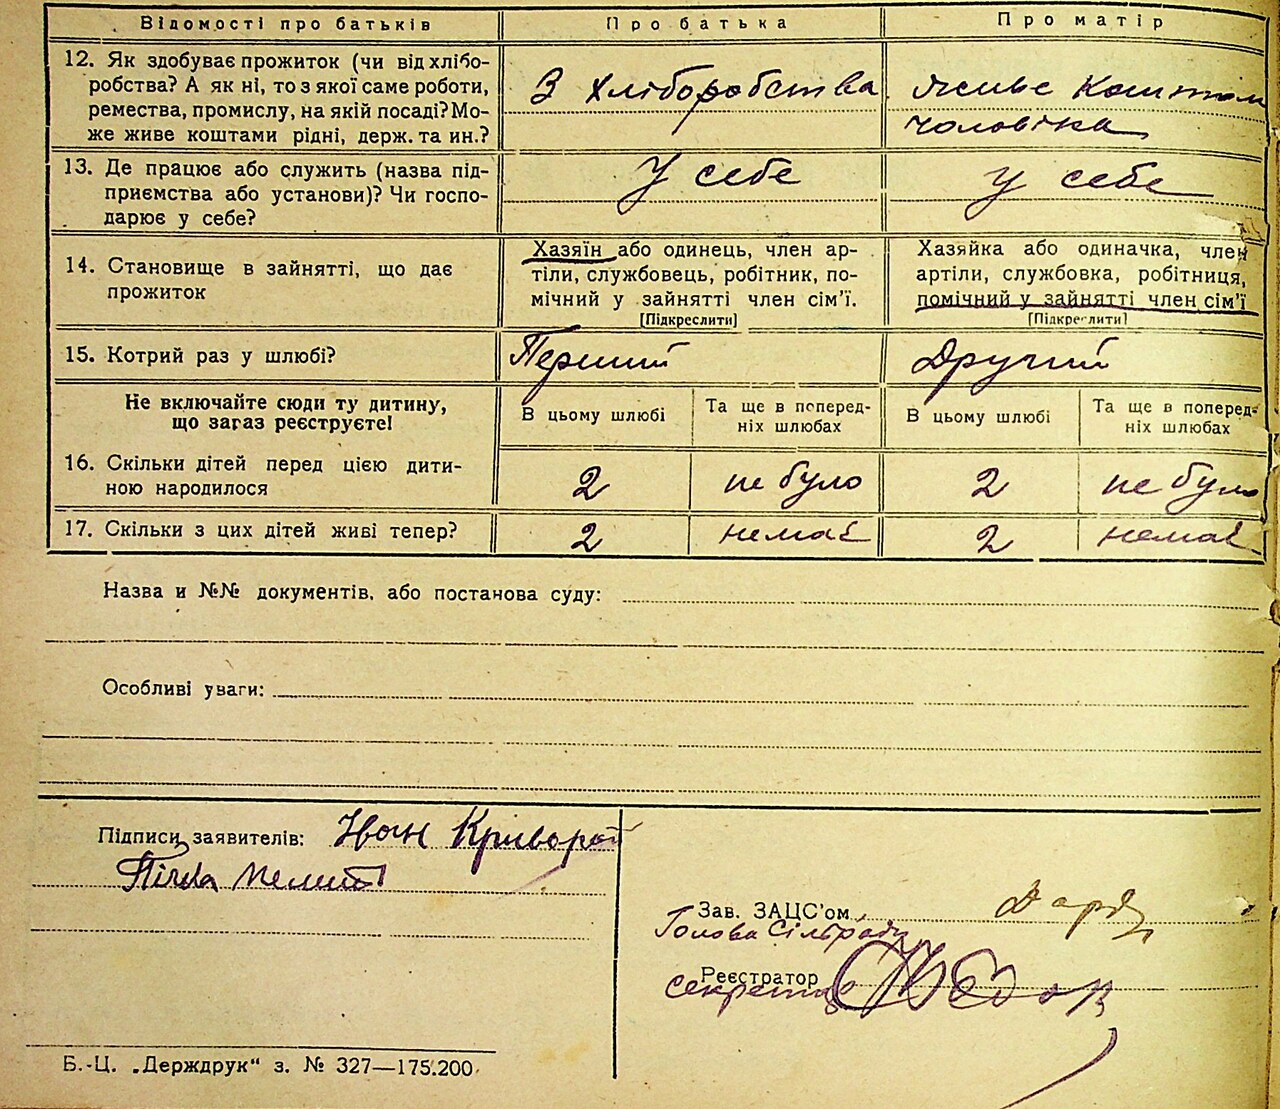 Відомості про батьків Про батька Про матір
12. Як здобуває прожиток (чи від хлібо-
робства? А як ні, то з якої саме роботи,
ремества, промислу, на якій посаді? Мо-
же живе коштами рідні, держ. та ин.?
З хліборобства
живе коштом
чоловіка
13. Де працює або служить (назва під-
приємства або установи)? Чи госпо-
дарює у себе?
У себе
У себе
14. Становище в зайнятті, що дає
прожиток
Хазяїн або одинець, член ар-
тіли, службовець, робітник, по-
мічний у зайнятті член сім'ї.
[Підкреслити]
Хазяйка або одиначка, член
артіли, службовка, робітниця,
помічний у зайнятті член сім'ї
[Підкреслити]
15. Котрий раз у шлюбі? Перший Другий
Не включайте сюди ту дитину,
що загаз реєструєте!
В цьому шлюбі
Та ще в поперед-
ніх шлюбах
В цьому шлюбі
Та ще в поперед-
ніх шлюбах
16. Скільки дітей перед цією дити-
ною народилося
2 не було 2 не було
17. Скільки з цих дітей живі тепер? 2 немає 2 немає
Назва и №№ документів, або постанова суду:
Особливі уваги:
Підписи заявителів: Іван
Зав. ЗАЦС'ом
Голова Сільради
Реєстратор
секретар
Б.-Ц. „Держдрук“ з. № 327—175.200